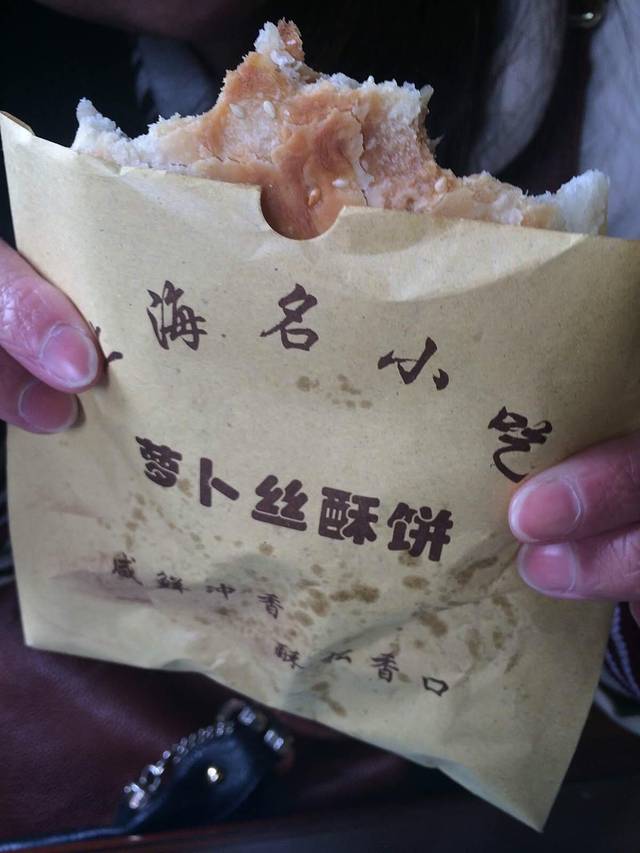 海名小吃
萝卜丝酥饼
咸鲜冲香
酥松香口